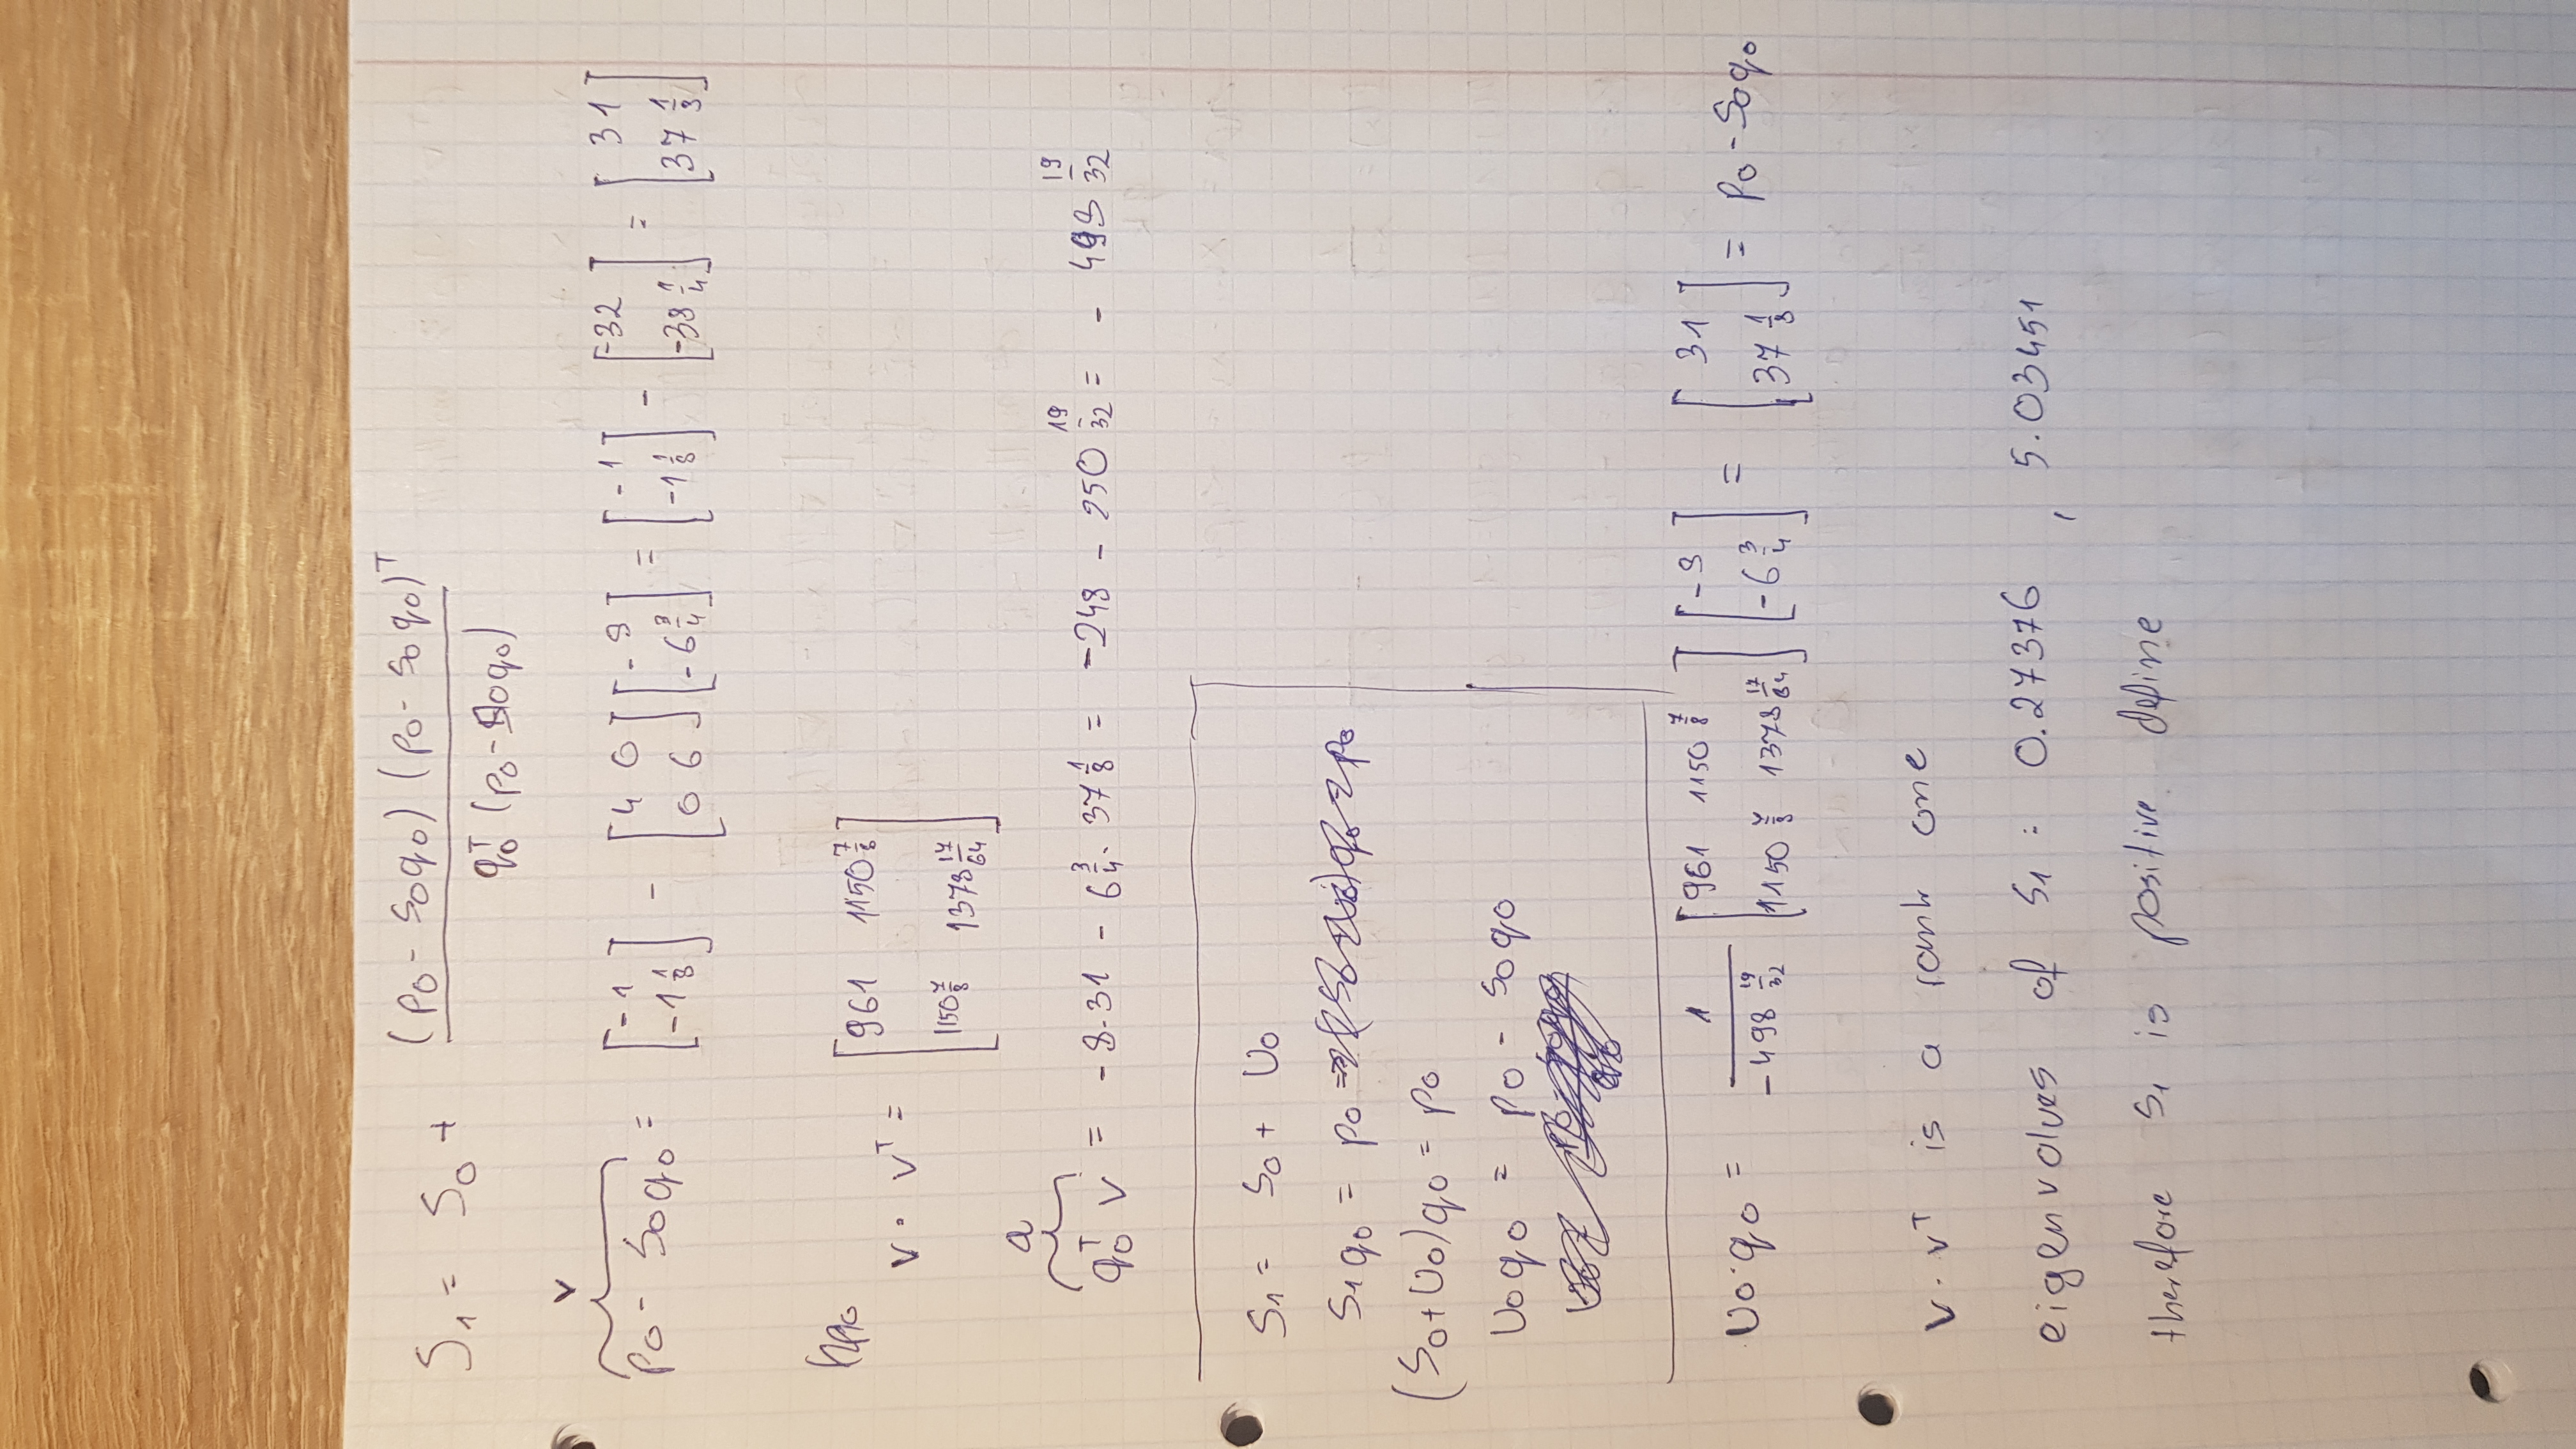 S₁ = S₀ + (p₀ - S₀q₀) (p₀ - S₀q₀)ᵀ / q₀ᵀ (p₀ - S₀q₀)
v
p₀ - S₀q₀ = [-1; -1 1/8] - [4 0; 0 6] [-8; -6 3/4] = [-1; -1 1/8] - [-32; -38 1/4] = [31; 37 1/8]
v · vᵀ = [961 1150 7/8; 1150 7/8 1378 17/64]
a
q₀ᵀ v = -8·31 - 6 3/4 · 37 1/8 = -248 - 250 19/32 = - 498 19/32
S₁ = S₀ + U₀
S₁q₀ = p₀
(S₀+U₀)q₀ = p₀
U₀q₀ = p₀ - S₀q₀
U₀·q₀ = 1 / -498 19/32 [961 1150 7/8; 1150 7/8 1378 17/64] [-8; -6 3/4] = [31; 37 1/8] = p₀ - S₀q₀
v · vᵀ is a rank one
eigenvalues of S₁ : 0.27376 , 5.03451
therefore S₁ is positive define